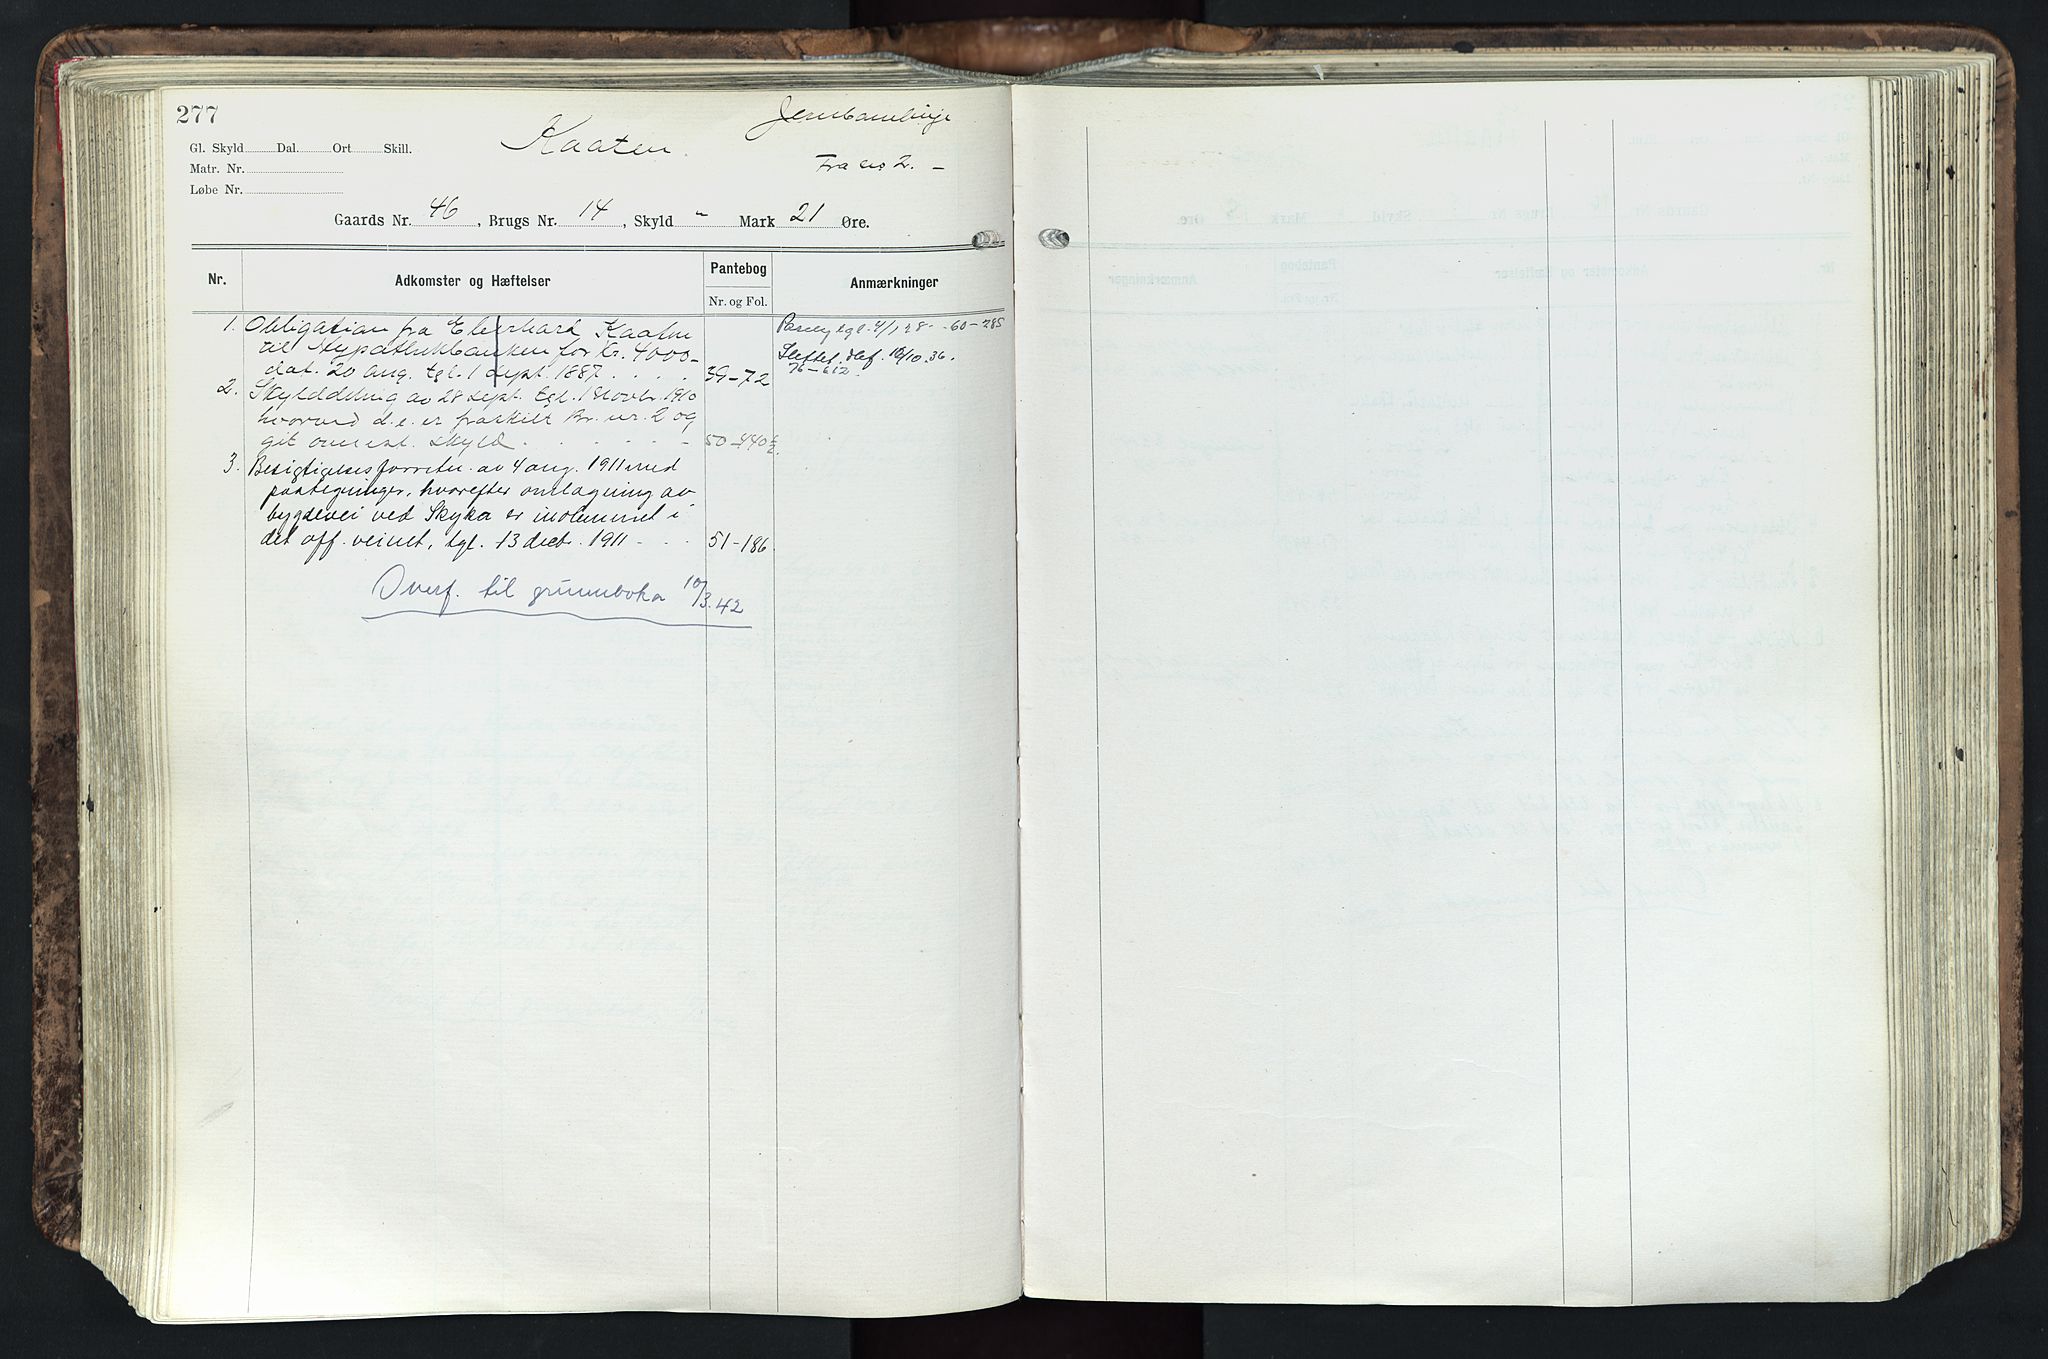 277
Kaaten.
Gl. Skyld Dal. Ort Skill.
Matr. Nr.
Fra no 2. –
Løbe Nr.
Gaards Nr. 46, Brugs Nr. 14, Skyld „ Mark 21 Øre.
Nr. Adkomster og Hæftelser Pantebog Anmærkninger
Nr. og Fol.
1. Obligation fra Eberhard Kaaten
til Hypothekbanken for Kr. 4000–
dat. 20 aug. tgl. 1 sept. 1887. . . . 39–72
tgl. 4/1 28 – 60–285
Slettet. 16/10. 36.
76–612.
2. Skylddeling av 28 sept. tgl. 1 Novbr. 1910
hvorved d. e. er fraskilt Br. nr. 2 og
git omest. skyld. . . . . – 50–440
3. Besigtigelsesforretn. av 4 aug. 1911 med
paategninger, hvorefter omlægning av
bygdevei ved Skyka er indlemmet i
det off. veinet, tgl. 13 decbr. 1911 . . . 51–186
Overf. til grunnboka 10/3.42